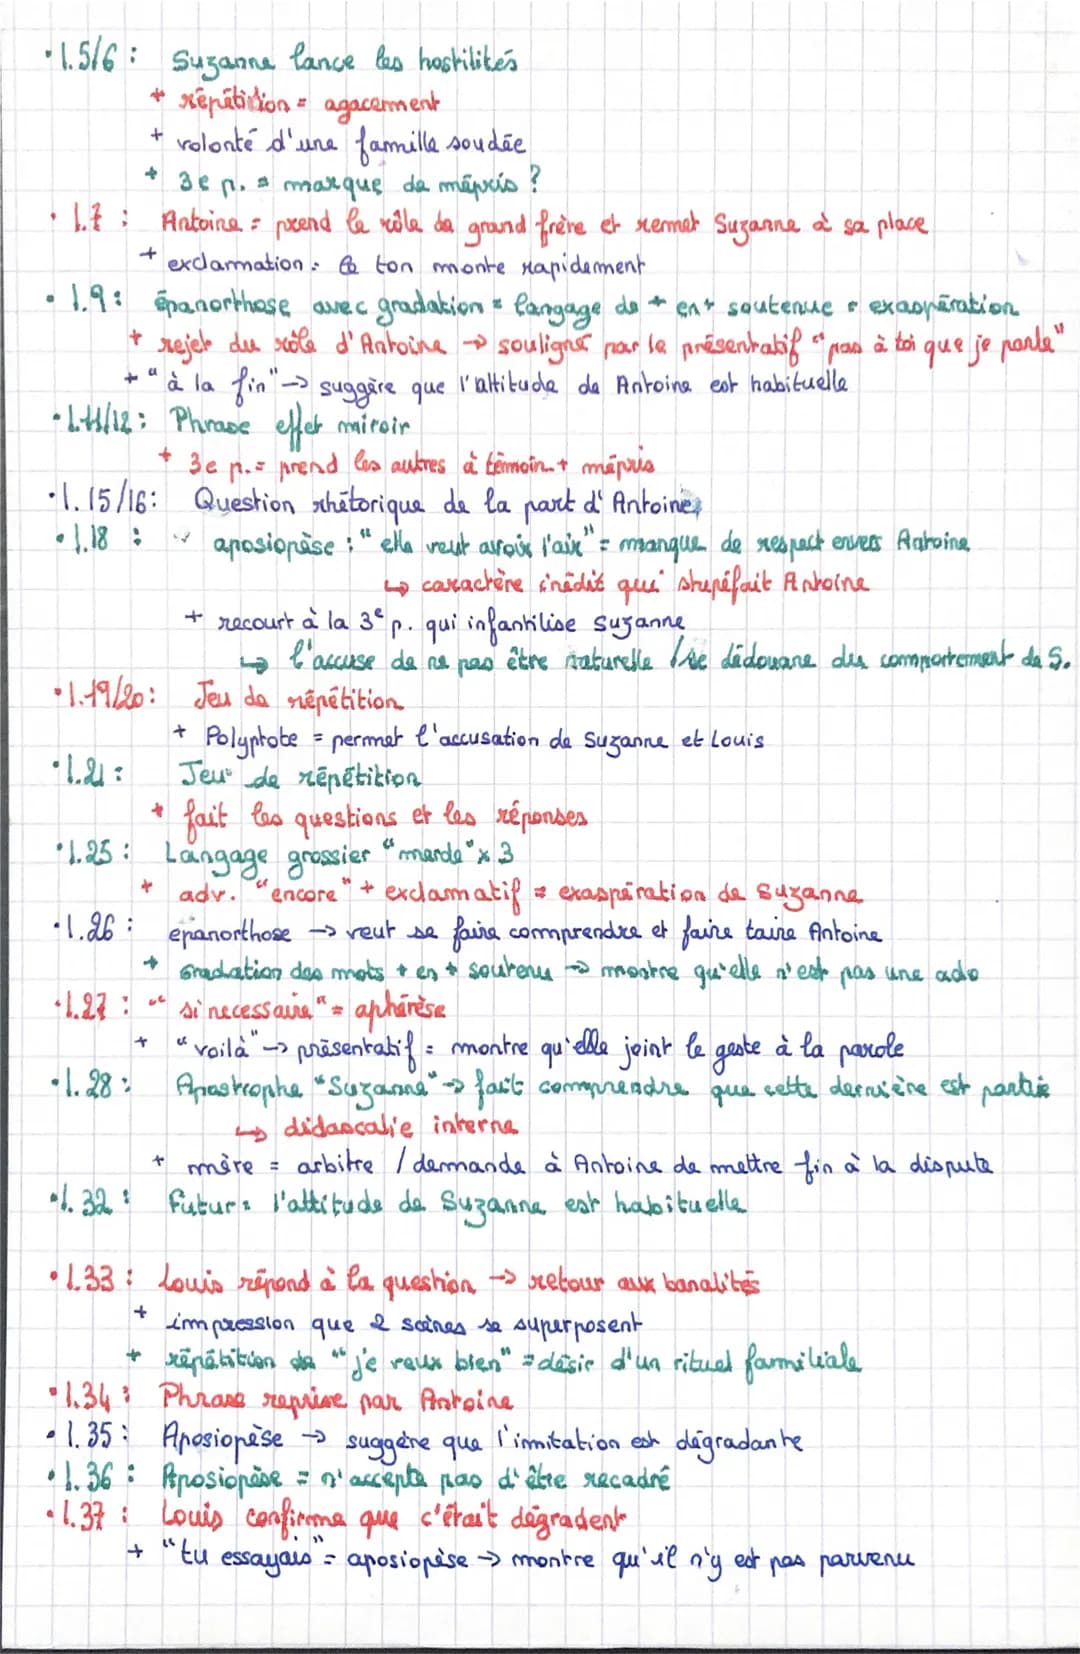 • l.5/6 : Suzanne lance les hostilités
+ répétition = agacement
+ volonté d'une famille soudée
+ 3e p. = marque de mépris ?
• l.7 : Antoine = prend le rôle de grand frère et remet Suzanne à sa place
+ exclamation : le ton monte rapidement
• l.9 : épanorthose avec gradation = langage de + en + soutenue = exaspération
+ rejet du rôle d'Antoine → souligné par le présentatif "pas à toi que je parle"
+ "à la fin" → suggère que l'attitude de Antoine est habituelle
• l.11/12 : Phrase effet miroir
+ 3e p. = prend les autres à témoin + mépris
• l.15/16 : Question rhétorique de la part d'Antoine
• l.18 : aposiopèse : "elle veut avoir l'air" = manque de respect envers Antoine
↳ caractère inédit qui stupéfait Antoine
+ recourt à la 3e p. qui infantilise Suzanne
↳ l'accuse de ne pas être naturelle / se dédouane du comportement de S.
• l.19/20 : Jeu de répétition
+ Polyptote = permet l'accusation de Suzanne et Louis
• l.21 : Jeu de répétition
+ fait les questions et les réponses
• l.25 : Langage grossier "merde" x 3
+ adv. "encore" + exclamatif = exaspération de Suzanne
• l.26 : epanorthose → veut se faire comprendre et faire taire Antoine
+ Gradation des mots + en + soutenu → montre qu'elle n'est pas une ado
• l.27 : "si necessaire" = aphérèse
+ "voilà" → présentatif = montre qu'elle joint le geste à la parole
• l.28 : Apostrophe "Suzanne" → fait comprendre que cette dernière est partie
↳ didascalie interne
+ mère = arbitre / demande à Antoine de mettre fin à la dispute
• l.32 : Futur = l'attitude de Suzanne est habituelle
• l.33 : Louis répond à la question → retour aux banalités
+ impression que 2 scènes se superposent
+ répétition de "je veux bien" = désir d'un rituel familiale
• l.34 : Phrase reprise par Antoine
• l.35 : Aposiopèse → suggère que l'imitation est dégradante
• l.36 : Aposiopèse = n'accepte pas d'être recadré
• l.37 : Louis confirme que c'était dégradent
+ "tu essayais" = aposiopèse → montre qu'il n'y est pas parvenu